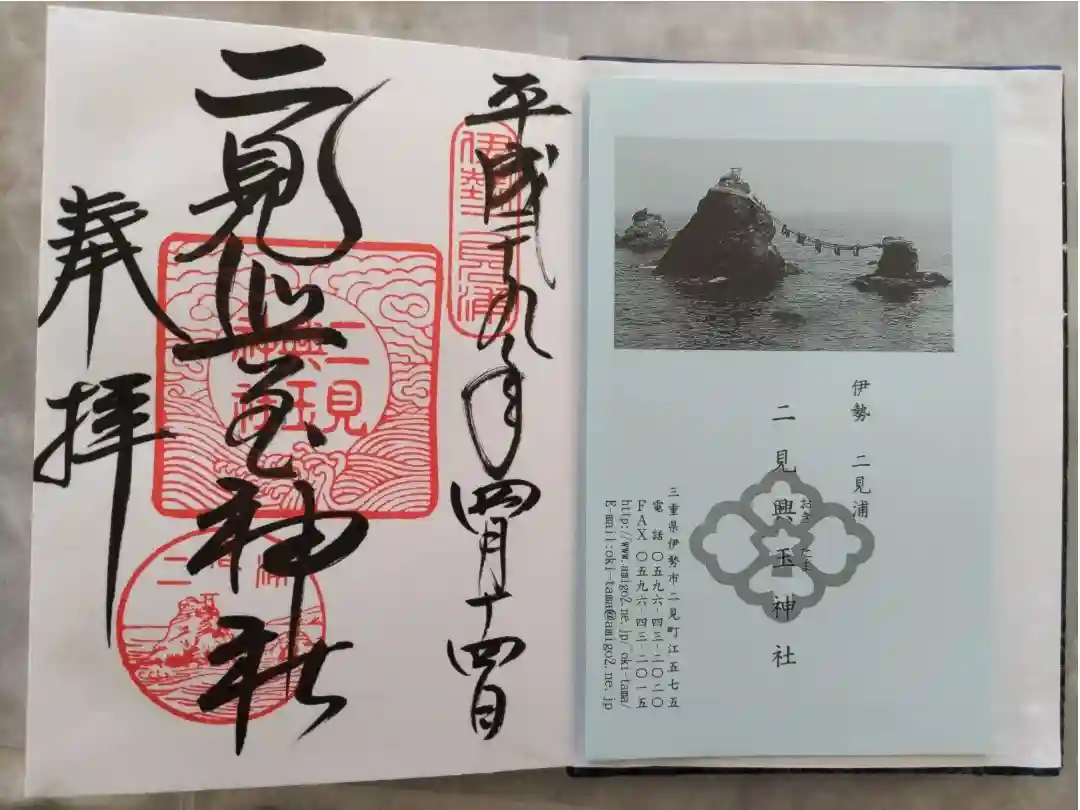 伊勢 二見浦
二見興玉神社
おき たま
三重県伊勢市二見町江五七五
電話 〇五九六-四三-二〇二〇
FAX 〇五九六-四三-二〇一五
http://www.amigo2.ne.jp/~oki-tama/
E-mail:oki-tama@amigo2.ne.jp
平成二十九年四月十四日
伊勢二見浦
二見興玉神社
二見
興玉
神社
二見浦
奉拝